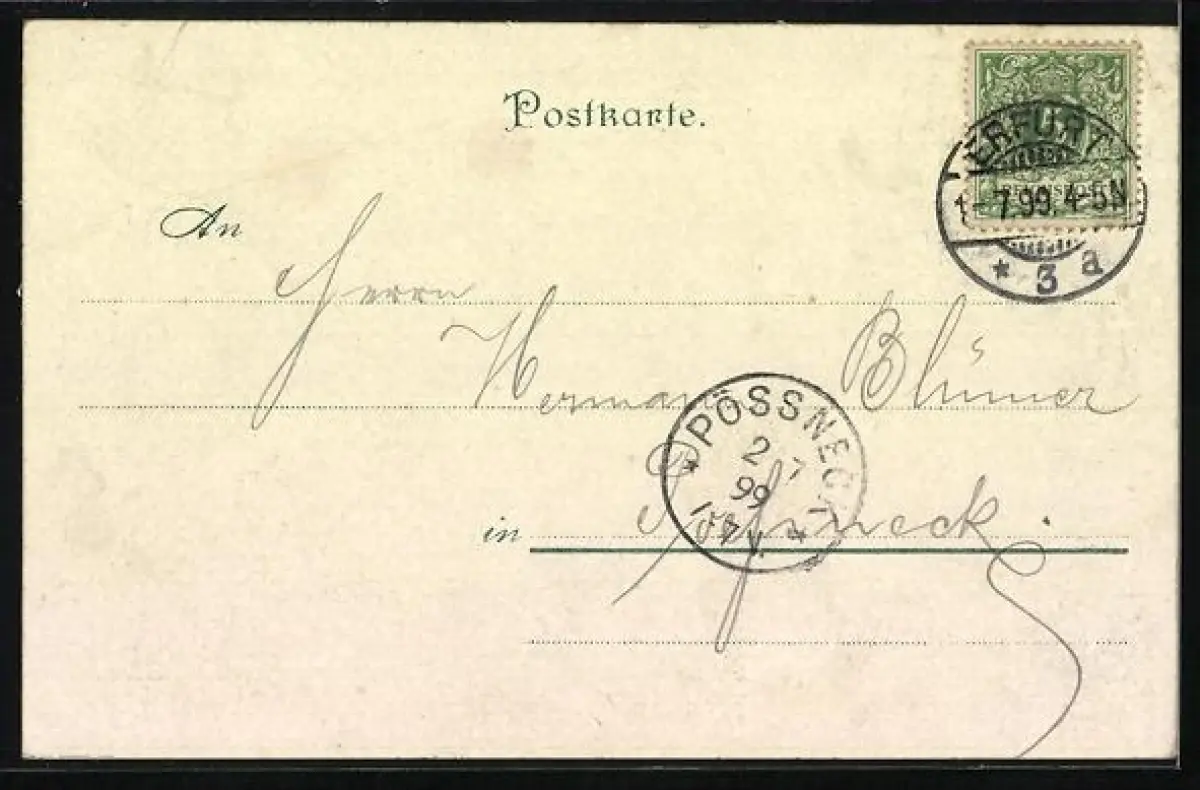 Postkarte.
ERFURT
1-7.99. 4-5N
* 3 a
REICHSPOST
An
Herrn
Hermann Blümer
PÖSSNECK
2 7
99
V.
in Pößneck.